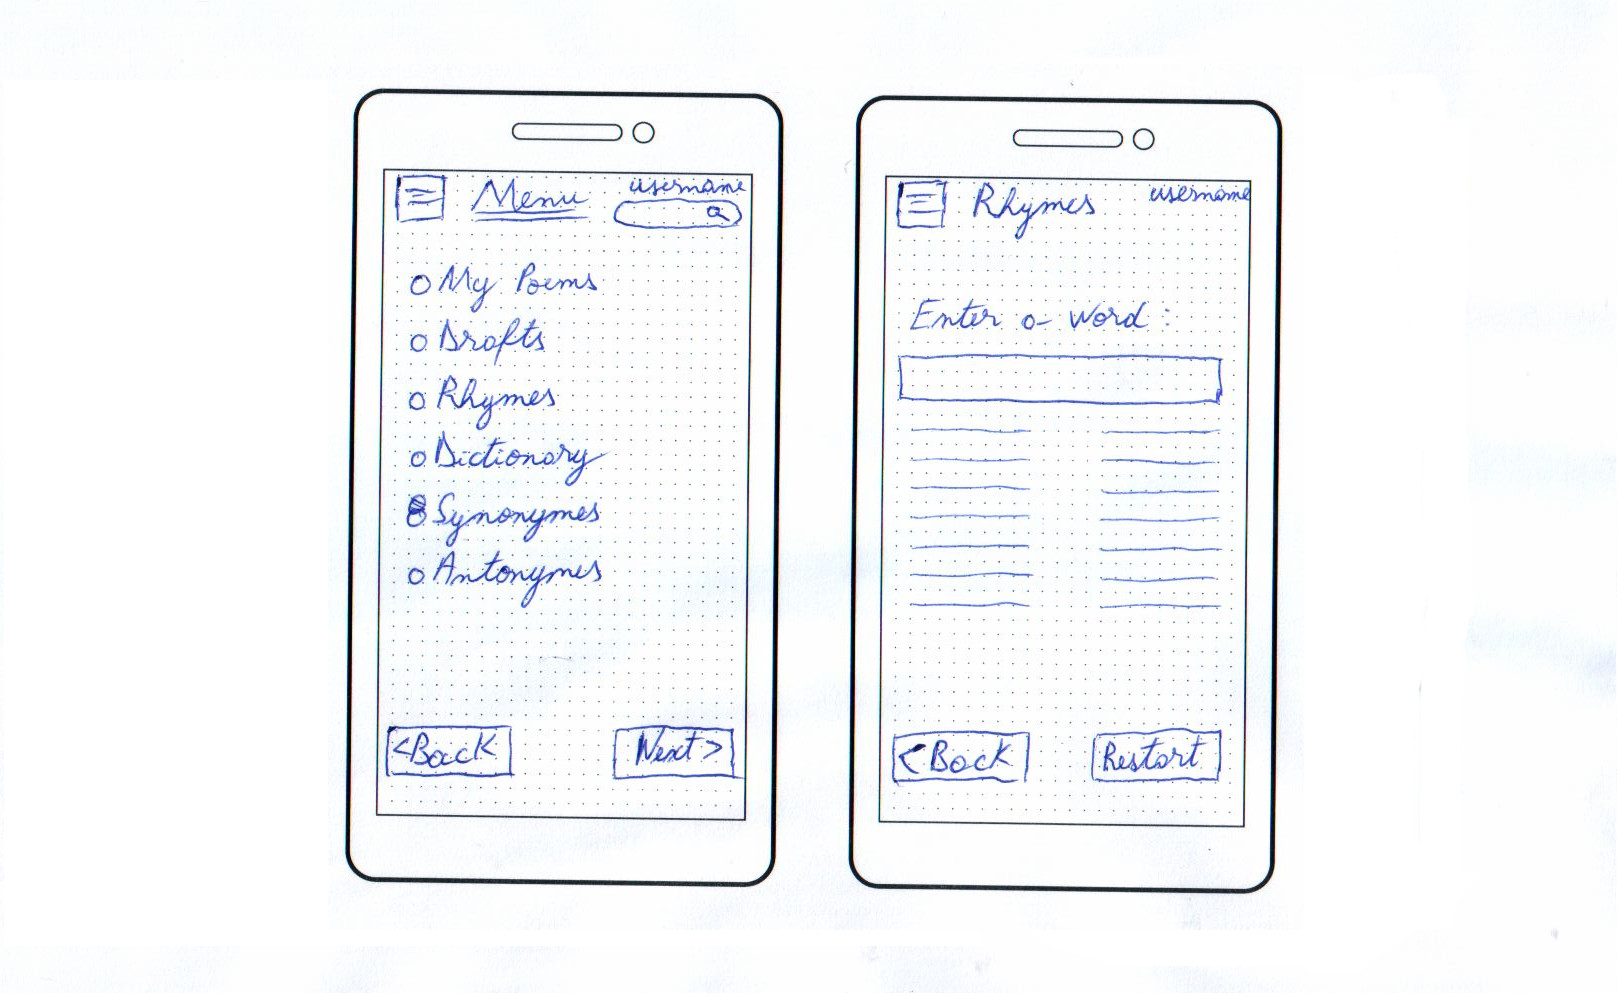 Menu
username
My Poems
Drafts
Rhymes
Dictionary
Synonymes
Antonymes
<Back
Next>
Rhymes
username
Enter a word:
<Back
Restart